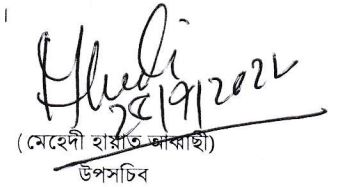 ।
২৫/৭/২০২২
(মেহেদী হায়াত আব্বাছী)
উপসচিব